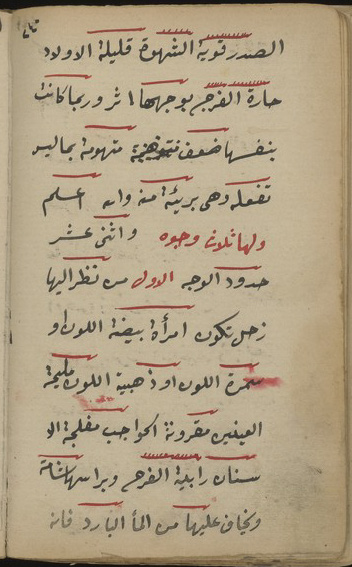 الصدر قوية الشهوة قليلة الاولاد
حارة الفرج بوجهها اثر وربما كانت
بنفسها ضعف متهومة بما ليس
تفعله وهى بريئة منه والله اعلم
ولها ثلاث وجوه واثنى عشر
حدود الوجه الاول من نظر اليها
زحل تكون امرأة بيضة اللون او
سمرة اللون او ذهبية اللون مليحة
العينين مقرونة الحواجب مفلجة الا
سنان رابية الفرج وبراسها شامة
ويخاف عليها من المأ البارد فانه